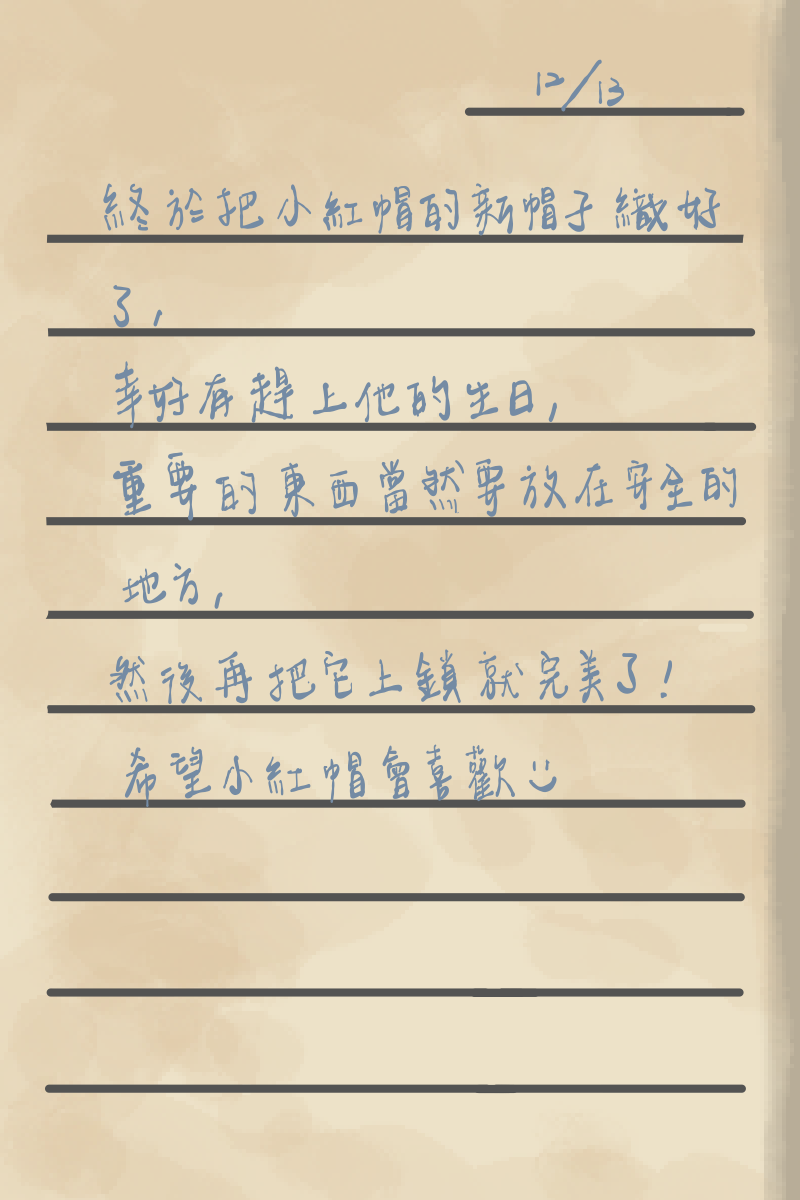 12/13
終於把小紅帽的新帽子織好
了,
幸好有趕上他的生日,
重要的東西當然要放在安全的
地方,
然後再把它上鎖就完美了!
希望小紅帽會喜歡:)